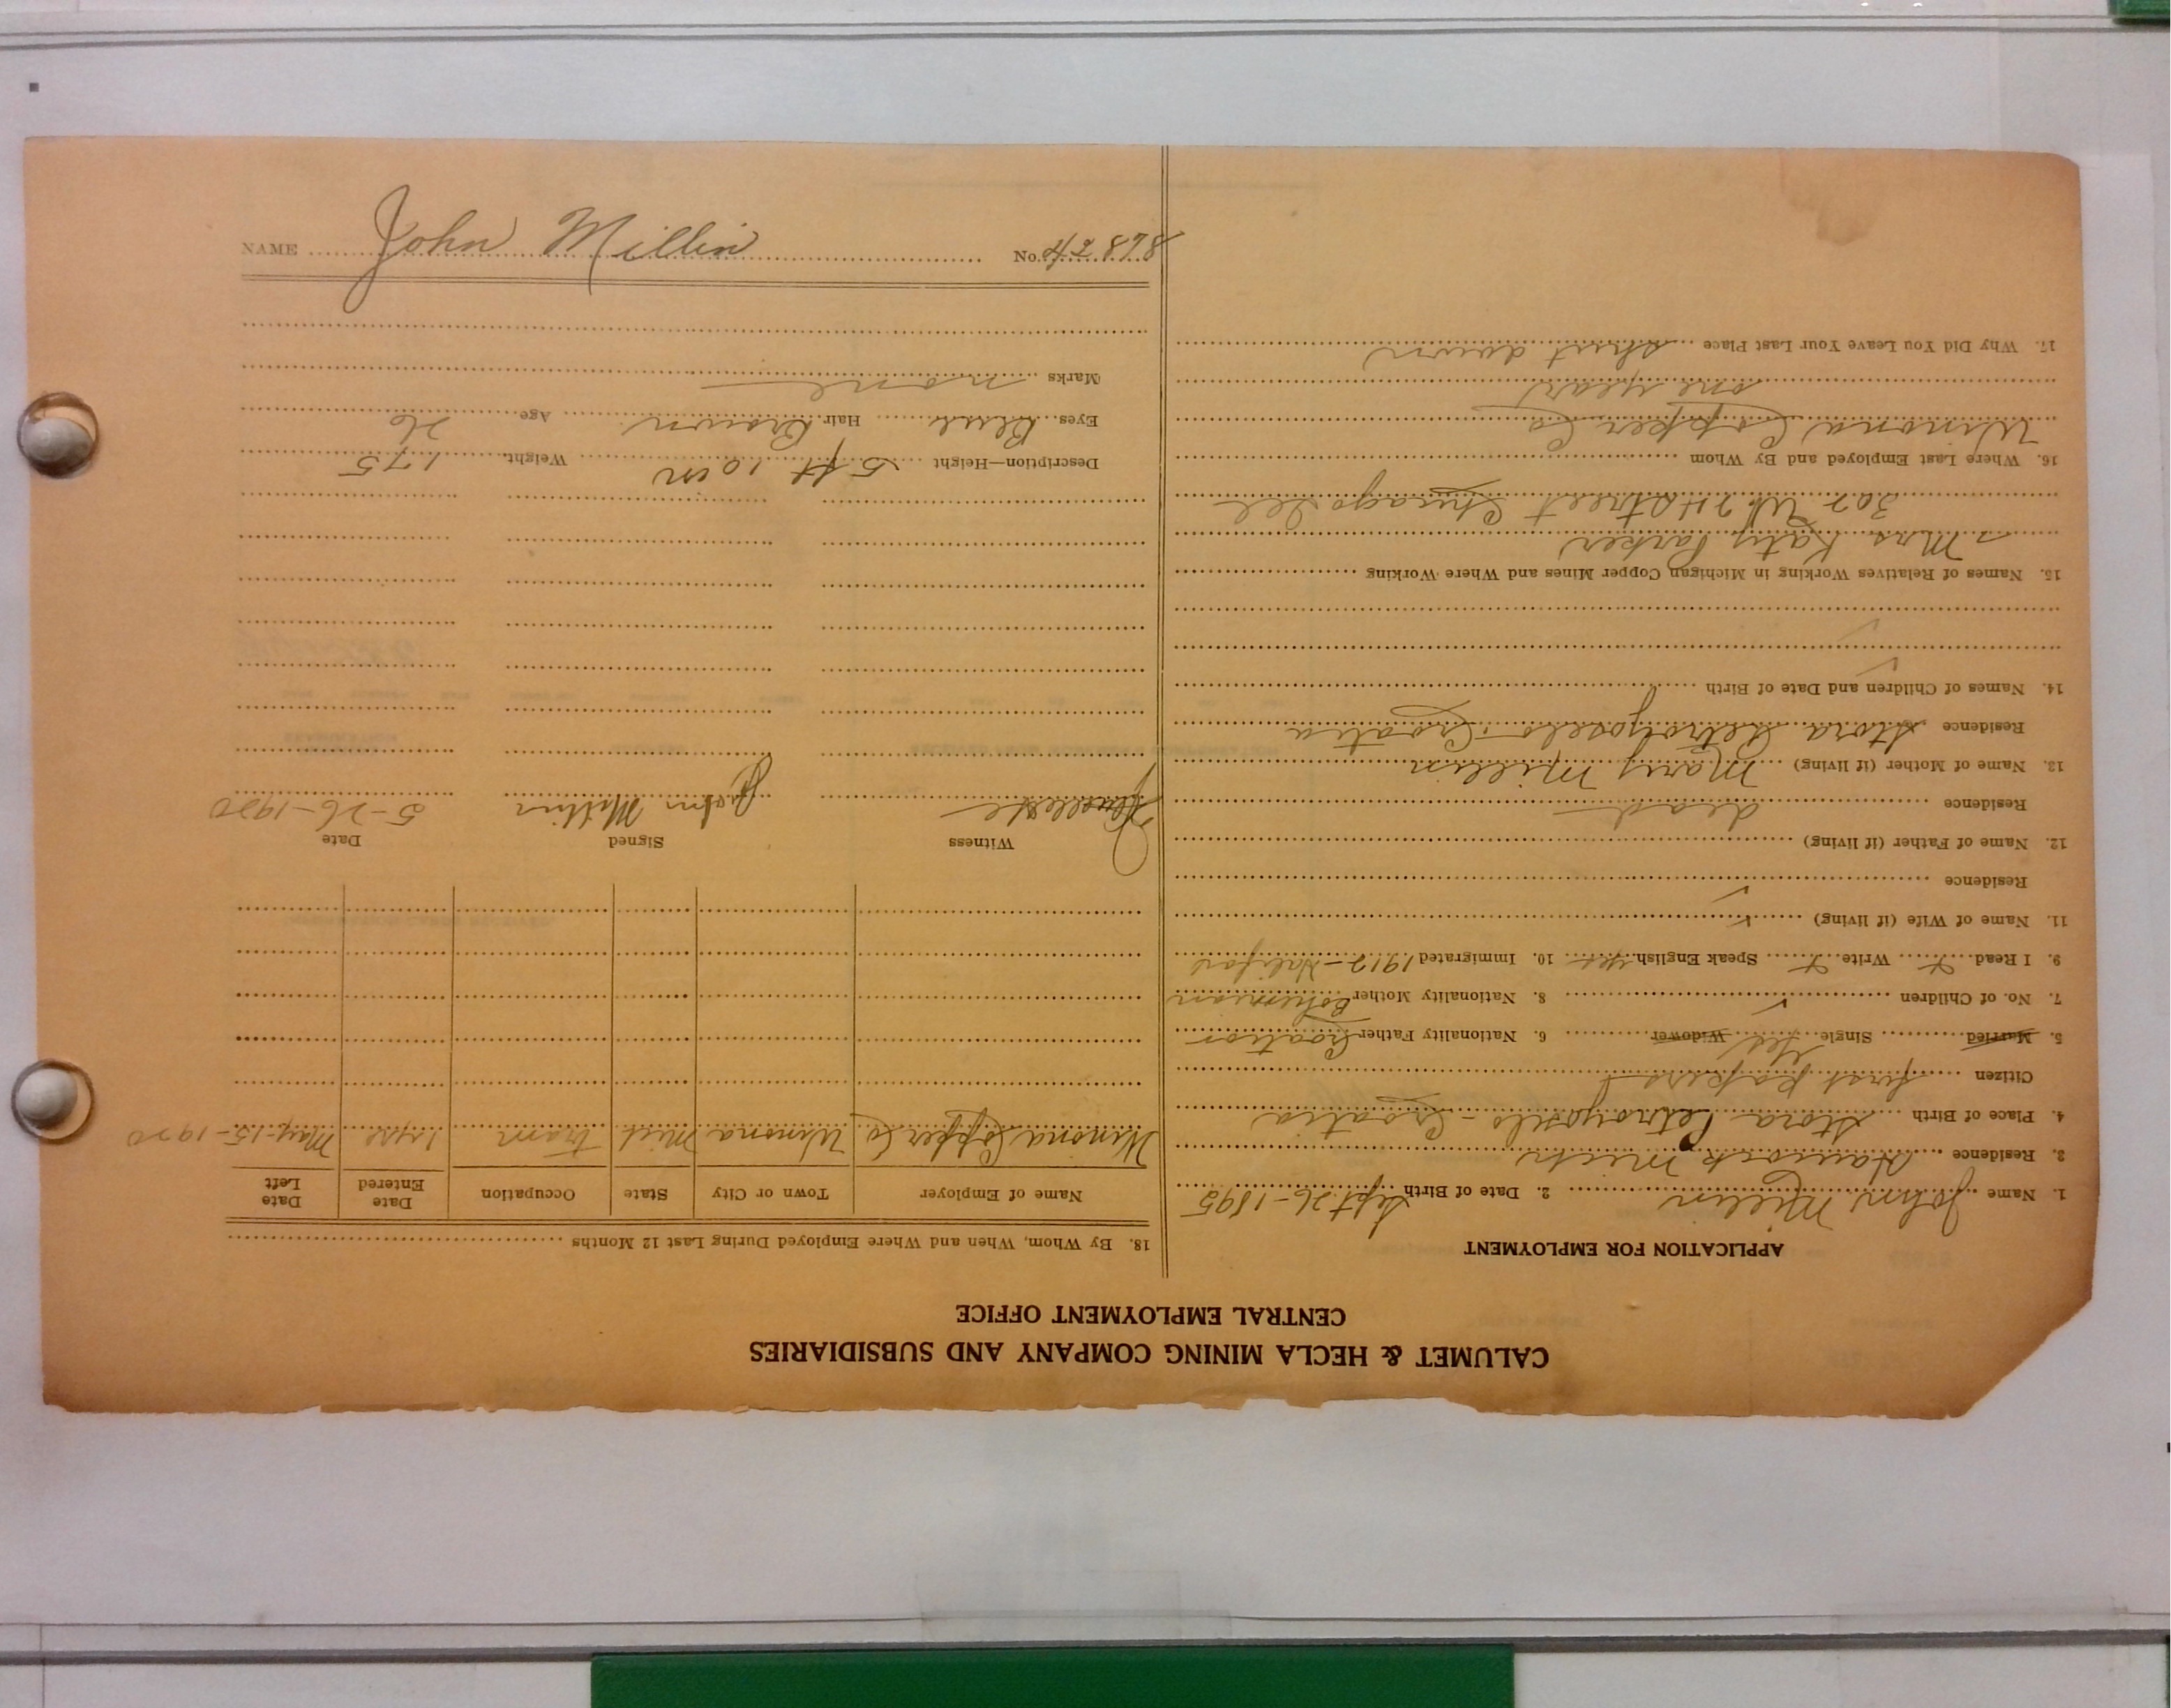 CALUMET & HECLA MINING COMPANY AND SUBSIDIARIES
CENTRAL EMPLOYMENT OFFICE
APPLICATION FOR EMPLOYMENT
1. Name John Millin 2. Date of Birth Sept. 26-1895
3. Residence Hancock Mich
4. Place of Birth Stora Petrovoselo - Croatia
Citizen first papers
5. Married Single yes Widower 6. Nationality Father Croatian
7. No. of Children ✓ 8. Nationality Mother Bohemian
9. I Read x Write x Speak English yes 10. Immigrated 1912-Halifax
11. Name of Wife (if living) ✓
Residence ✓
12. Name of Father (if living)
Residence dead
13. Name of Mother (if living) Mary Millin
Residence Stora Petrovoselo-Croatia
14. Names of Children and Date of Birth ✓
✓
15. Names of Relatives Working in Michigan Copper Mines and Where Working
Mrs Katy Parker
307 W. Street Chicago Ill
16. Where Last Employed and By Whom
Winona Copper Co
one year
17. Why Did You Leave Your Last Place shut down
18. By Whom, When and Where Employed During Last 12 Months
Name of Employer Town or City State Occupation Date Entered Date Left
Winona Copper Co Winona Mich tram 1 year May-15-1920
Witness Signed Date
John Millin 5-26-1920
Description—Height 5 ft 10 in Weight 175
Eyes Blue Hair Brown Age 26
Marks none
NAME John Millin No. 42878